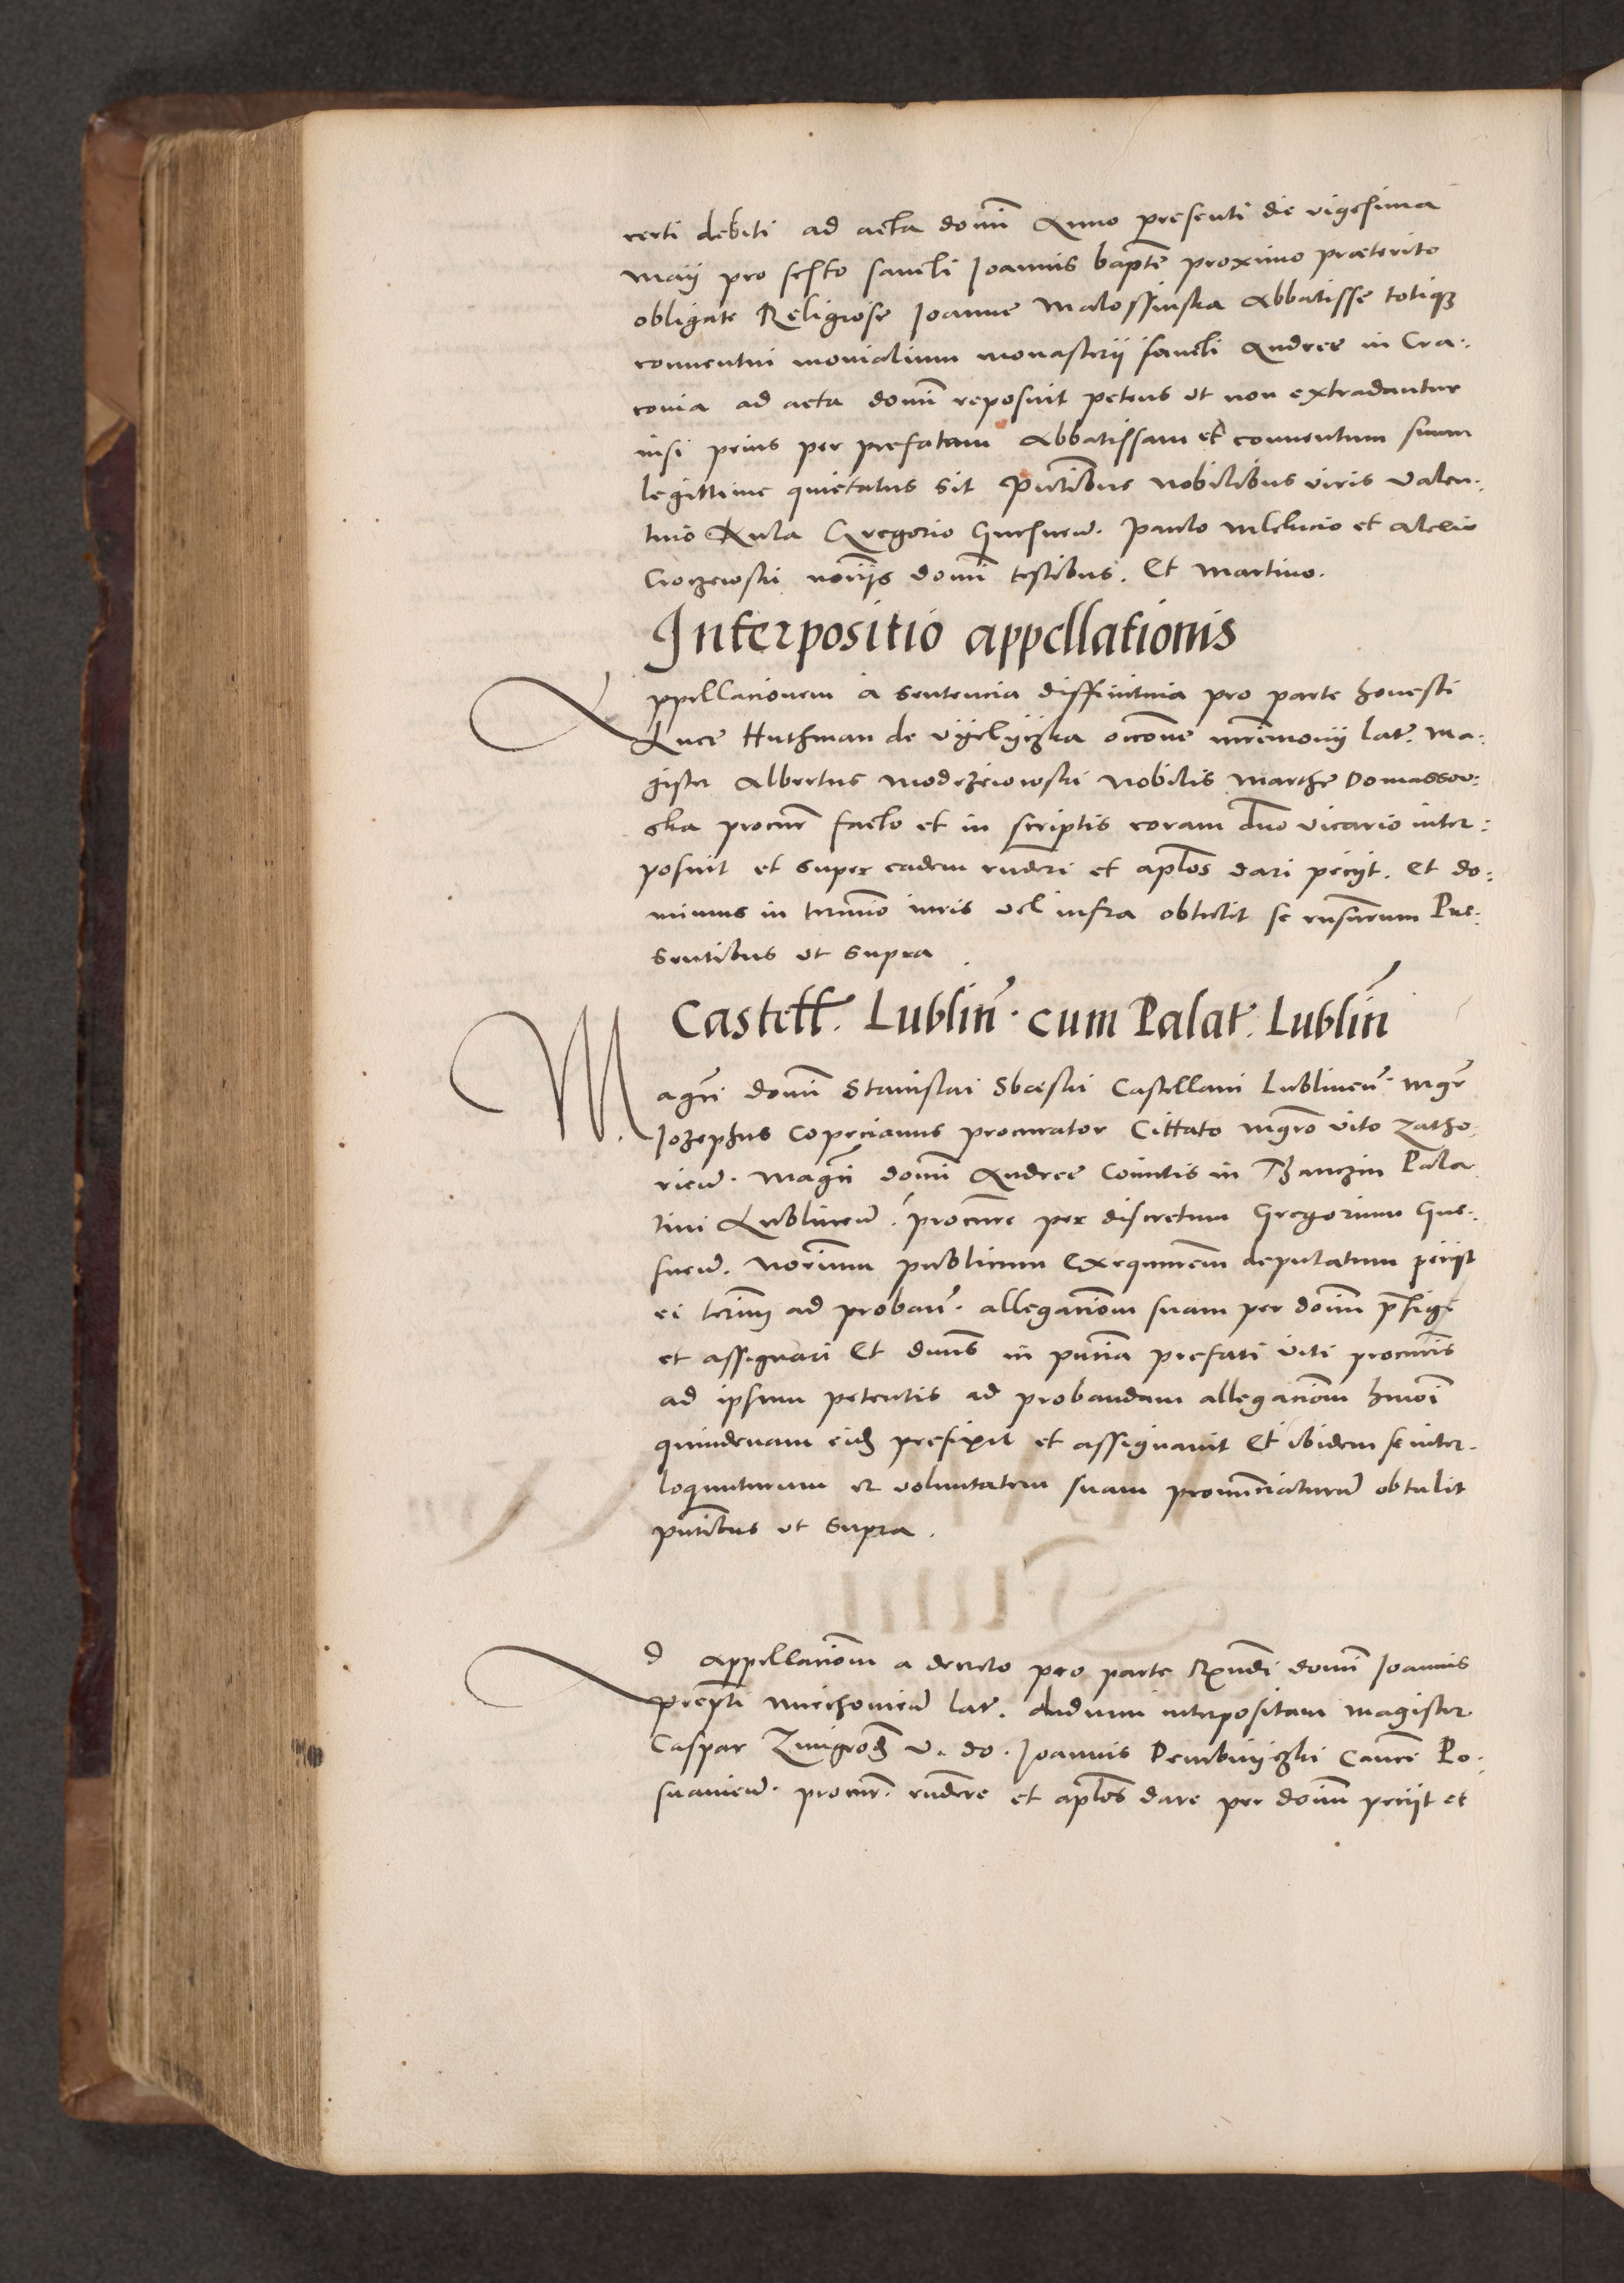 certi debiti ad acta domĩ Anno presenti die vigesima
maij pro festo sancti Joannis baptẽ proximo præterito
obligatę Religiosę Joannę Malossinska Abbatissę totiqȝ
conuentui monialium monasterij sancti Andreę in Cra:
couia ad acta domĩ reposuit petens vt non extradantur
nisi prius per prefatam Abbatissam et conuentum suum
legittime quietatus sit Pñtibus nobilibus viris Valen:
tino Kula Gregorio Gnesneñ. Paulo et
notrijs domĩ testibus. Et Martino.
Interpositio appellationis
Appellacionem a sentencia diffinitiua pro parte honesti
Lucę Huthman de Vyelyczka occõne mr̃imonij lat̃. Ma:
gister Albertus Modrzeiowski nobilis Marthę Domassow:
ska procur̃ facto et in scriptis coram dño vicario inter:
posuit et super eadem r̃nderi et aplõs dari pecijt. Et do:
minus in termĩo iuris vel infra obtulit se r̃nsurum Pre:
sentibus vt supra.
Castell̃. Lubliñ. cum Palat̃. Lubliñ
Magci domĩ Stanislai Sbąski Castellani Lublineñ. mgr̃
Jozephus Coprcianus procurator Cittato mgr̃o Vito Zatho:
rieñ. Magci domĩ Andreę Comitis in Thanczin Pala
tini Lublineñ. procure per discretum Gregorium Gne:
sneñ. Norium publicum exequutorem deputatum pecijt
ei terim̃ ad probañ. allegacionem suam per domĩ p̃figi
et assignari Et dnus in pñcia prefati Viti procuris
ad ipsum petentis ad probandam allegacionem hmõi
quindenam eidȝ prefixit et assignauit Et ibidem se inter:
loquuturum et voluntatem suam pronuncciaturũ obtulit
pñtibus vt supra.
Ad Appellacionem a decreto pro parte Rndi domĩ Joannis
prepti Miechouieñ lat̃. dudum interpositam magister
Caspar Zmigrodȝ V. do. Joannis Dembinyczki Canci Po:
snanieñ. procur̃. r̃ndere et aplõs dare per domĩ pecijt et